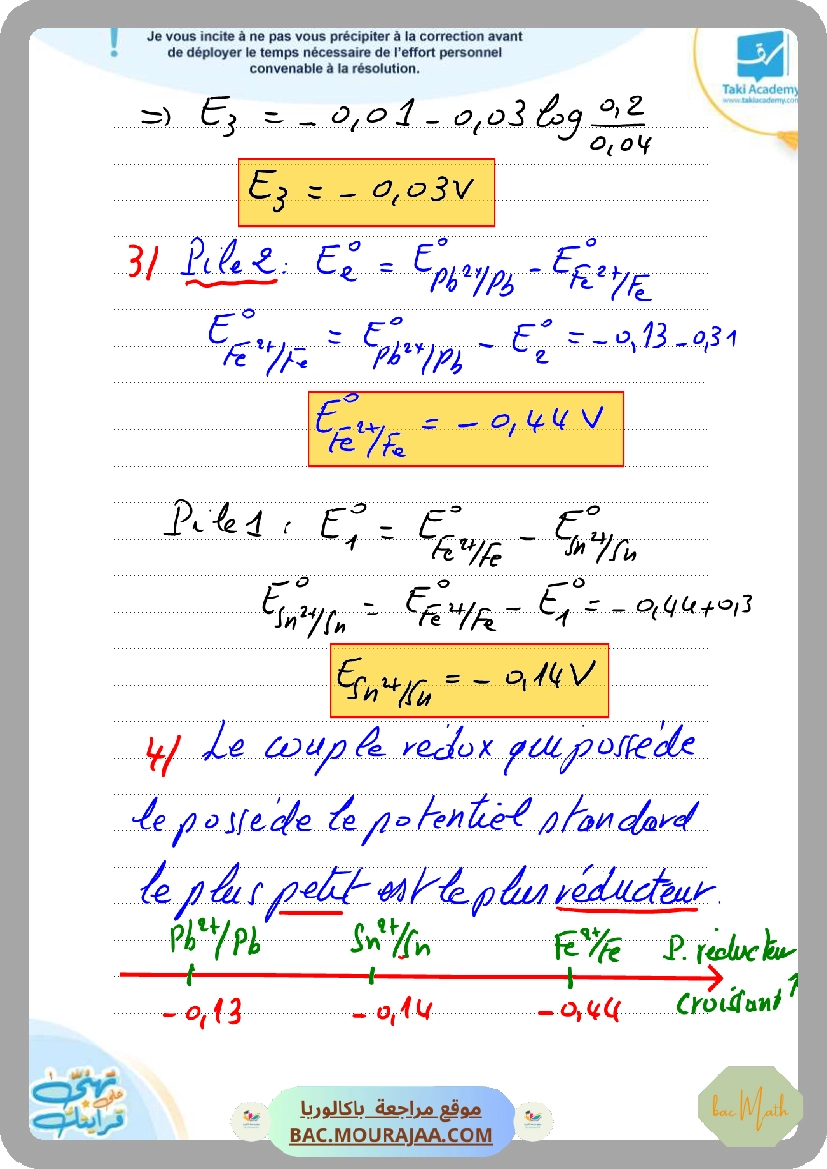 Je vous incite à ne pas vous précipiter à la correction avant
de déployer le temps nécessaire de l'effort personnel
convenable à la résolution.
Taki Academy
www.takiacademy.com
=> E₃ = - 0,01 - 0,03 log 0,2/0,04
E₃ = - 0,03V
3/ Pile 2: E₂° = E°Pb²⁺/Pb - E°Fe²⁺/Fe
E°Fe²⁺/Fe = E°Pb²⁺/Pb - E₂° = - 0,13 - 0,31
E°Fe²⁺/Fe = - 0,44 V
Pile 1 : E₁° = E°Fe²⁺/Fe - E°Sn²⁺/Sn
E°Sn²⁺/Sn = E°Fe²⁺/Fe - E₁° = - 0,44+0,3
ESn²⁺/Sn = - 0,14V
4/ Le couple redox qui possède
le possède le potentiel standard
le plus petit est le plus réducteur.
Pb²⁺/Pb Sn²⁺/Sn Fe²⁺/Fe P. réducteur
-0,13 -0,14 -0,44 croissant ↑
موقع مراجعة باكالوريا
BAC.MOURAJAA.COM
bac Math